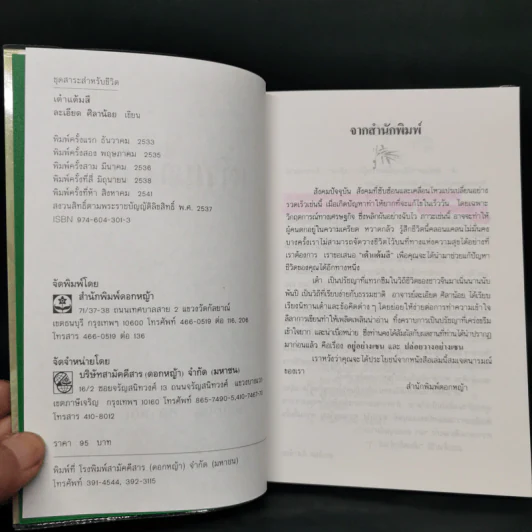 ชุดสาระสำหรับชีวิต
เต๋าแต้มสี
ละเอียด ศิลาน้อย เขียน
พิมพ์ครั้งแรก ธันวาคม 2533
พิมพ์ครั้งสอง พฤษภาคม 2535
พิมพ์ครั้งสาม มีนาคม 2536
พิมพ์ครั้งที่สี่ มิถุนายน 2538
พิมพ์ครั้งที่ห้า สิงหาคม 2541
สงวนสิทธิ์ตามพระราชบัญญัติลิขสิทธิ์ พ.ศ. 2537
ISBN 974-604-301-3
จัดพิมพ์โดย
สำนักพิมพ์ดอกหญ้า
71/37-38 ถนนเทศบาลสาย 2 แขวงวัดกัลยาณ์
เขตธนบุรี กรุงเทพฯ 10600 โทรศัพท์ 466-0519 ต่อ 116, 206
โทรสาร 466-0519 ต่อ 136
จัดจำหน่ายโดย
บริษัทสามัคคีสาร (ดอกหญ้า) จำกัด (มหาชน)
16/2 ซอยจรัญสนิทวงศ์ 13 ถนนจรัญสนิทวงศ์
เขตภาษีเจริญ กรุงเทพฯ 10160 โทรศัพท์ 865-7490-5,
โทรสาร 410-8012
ราคา 95 บาท
พิมพ์ที่ โรงพิมพ์สามัคคีสาร (ดอกหญ้า) จำกัด (มหาชน)
โทรศัพท์ 391-4544, 392-3115
จากสำนักพิมพ์
สังคมปัจจุบัน สังคมที่ซับซ้อนและเคลื่อนไหวแปรเปลี่ยนอย่าง
รวดเร็วเช่นนี้ เมื่อเกิดปัญหาทำให้ยากที่จะแก้ไขในเร็ววัน โดยเฉพาะ
วิกฤตการณ์ทางเศรษฐกิจ ซึ่งพลิกผันอย่างฉับไว ภาวะเช่นนี้ อาจจะทำให้
ผู้คนตกอยู่ในความเครียด หวาดกลัว รู้สึกชีวิตนี้คลอนแคลนไม่มั่นคง
บางครั้งเราไม่สามารถจัดวางชีวิตไว้บนที่ทางแห่งความสุขได้อย่างที่
เราต้องการ เราขอเสนอ "เต๋าแต้มสี" เพื่อคุณจะได้นำมาช่วยแก้ปัญหา
ชีวิตของคุณได้อีกทางหนึ่ง
เต๋า เป็นปรัชญาที่แทรกซึมในวิถีชีวิตของชาวจีนมาเนิ่นนานนับ
พันปี เป็นวิถีที่เรียบง่ายกับธรรมชาติ อาจารย์ละเอียด ศิลาน้อย ได้เรียบ
เรียงนิทานเต๋าและข้อคิดต่าง ๆ โดยย่อยให้ง่ายต่อการทำความเข้าใจ
ลีลาการเขียนทำให้เพลิดเพลินน่าอ่าน ทั้งคราบการเป็นปรัชญาที่เคร่งขรึม
เข้าใจยาก และน่าเบื่อหน่าย ซึ่งท่านคงได้สัมผัสกับผลงานที่ท่านได้นำปรากฏ
มาก่อนแล้ว คือเรื่อง อยู่อย่างเซน และ ปล่อยวางอย่างเซน
เราหวังว่าคุณจะได้ประโยชน์จากหนังสือเล่มนี้สมเจตนารมณ์
ของเรา
สำนักพิมพ์ดอกหญ้า